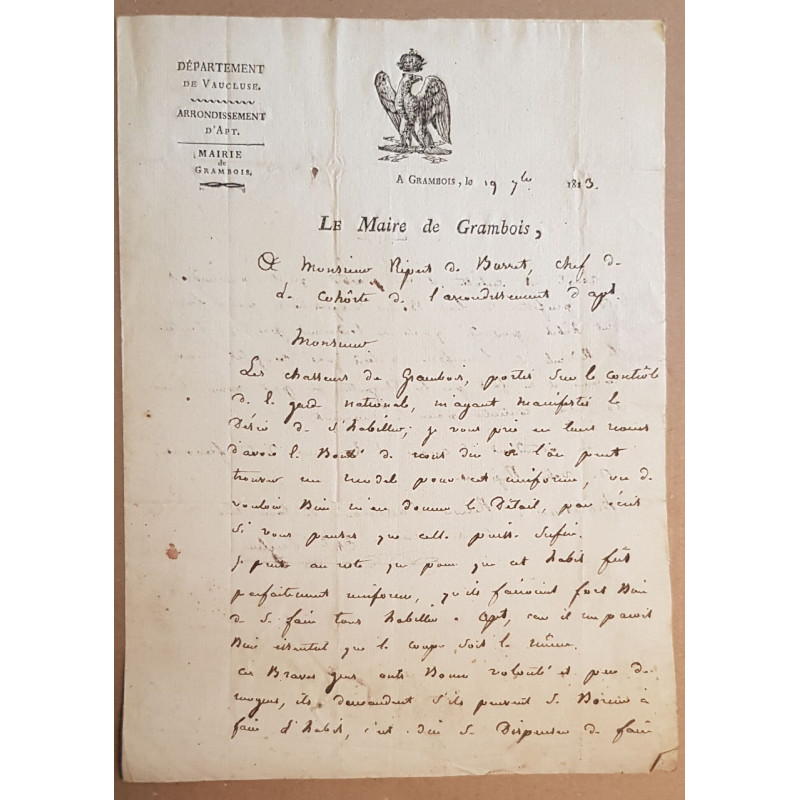 DÉPARTEMENT
DE VAUCLUSE.
ARRONDISSEMENT
D'APT.
MAIRIE
de
GRAMBOIS.
A GRAMBOIS, le 19 7bre 1813.
LE Maire de Grambois,
A Monsieur Ripert de Barret, chef de
de cohôrte de l'arrondissement d'apt.
Monsieur
Les chasseurs de Grambois, portés sur le contrôle
de la garde nationale, m'ayant manifesté le
Désir de s'habiller, je vous prie en leurs noms
d'avoir la Bonté de nous dire où l'on peut
trouver un model pour cet uniforme, ou de
vouloir Bien m'en donner le Détail, par écrit
Si vous pensez que cella puisse sufire.
Je pense au reste que pour que cet habit fut
parfaitement uniforme, qu'ils fairoint fort Bien
de se faire tous habiller a Apt, car il me paroit
Bien essentiel que la coupe soit la même.
ces Braves gens onts Bonne volonté et peu de
moyens, ils demandent s'ils peuvent se Borner à
faire l'habit, c'est dire se Dispenser de faire